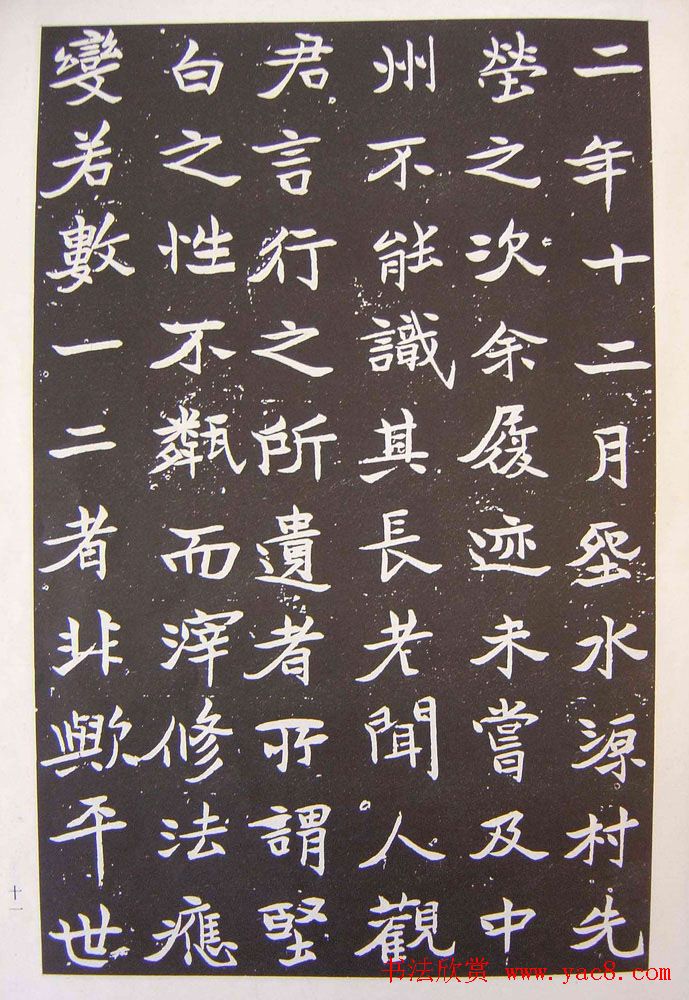 二年十二月聖水源村先
塋之次余履迹未嘗及中
州不能識其長老聞人觀
君言行之所遺者所謂堅
白之性不粼而滓修法應
變若數一二者非歟平世
十一
书法欣赏 www.yac8.com